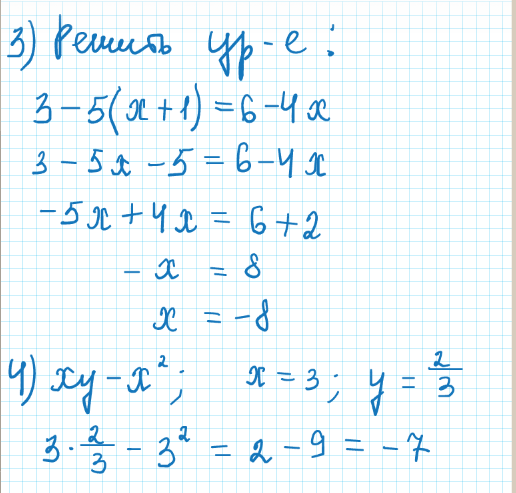 3) Решить ур-е:
3 - 5(x + 1) = 6 - 4x
3 - 5x - 5 = 6 - 4x
-5x + 4x = 6 + 2
- x = 8
x = -8
4) xy - x²; x = 3; y = 2/3
3 · 2/3 - 3² = 2 - 9 = -7